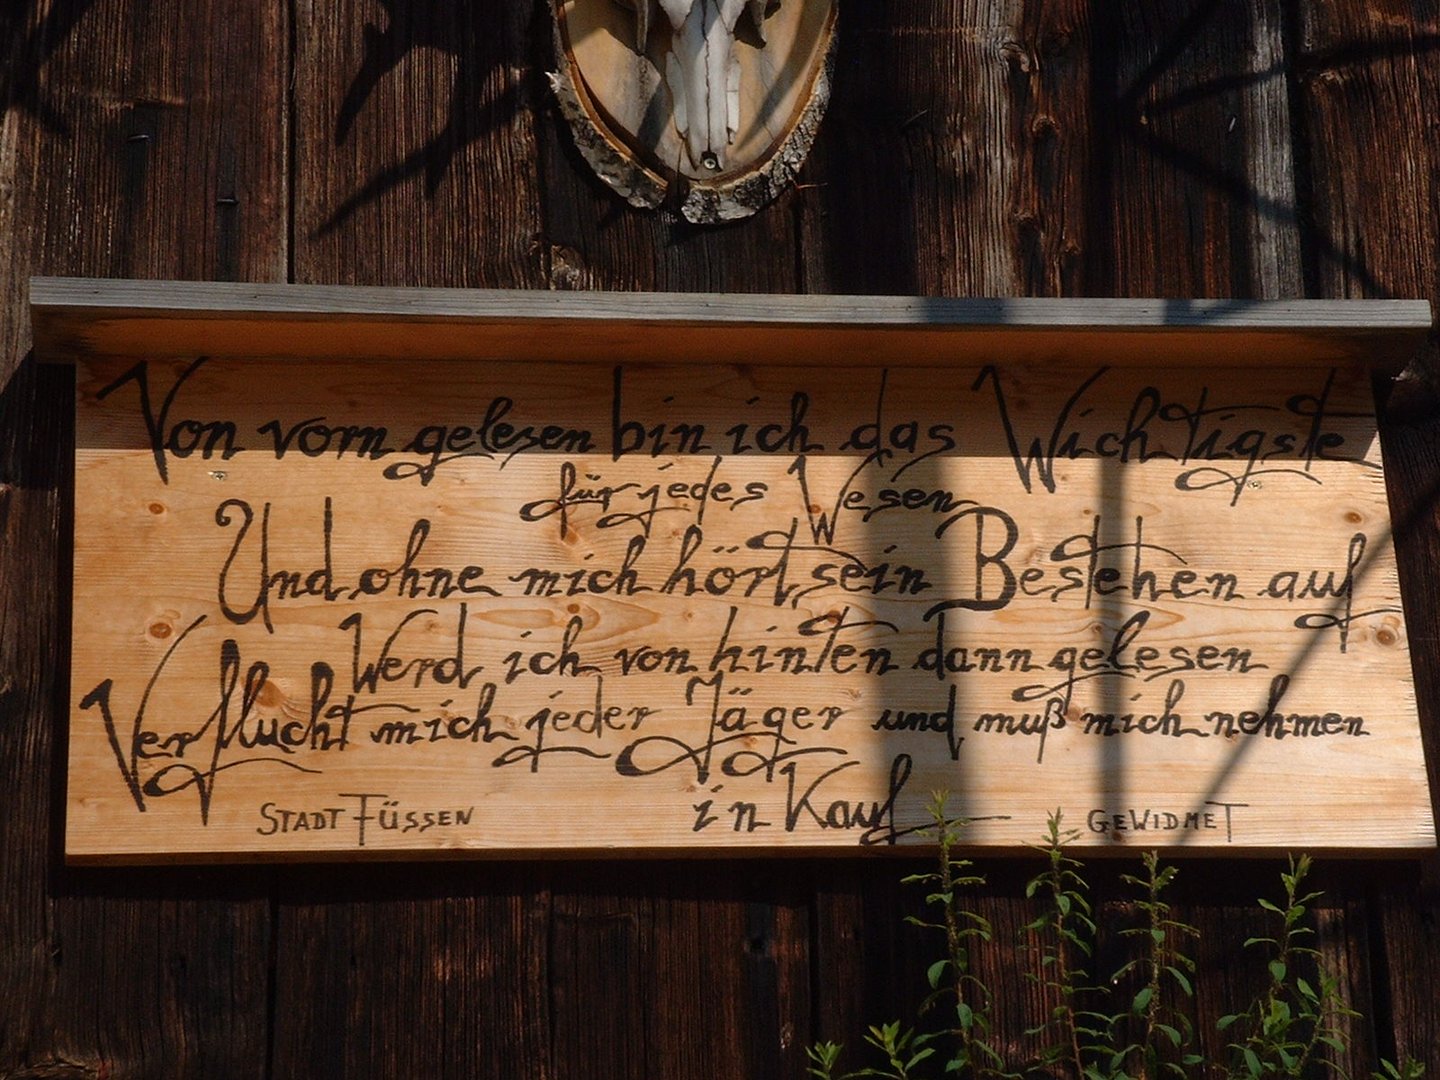 Von vorn gelesen bin ich das Wichtigste
für jedes Wesen
Und ohne mich hört sein Bestehen auf
Werd ich von hinten dann gelesen
Verflucht mich jeder Jäger und muß mich nehmen
in Kauf
STADT FÜSSEN
GEWIDMET